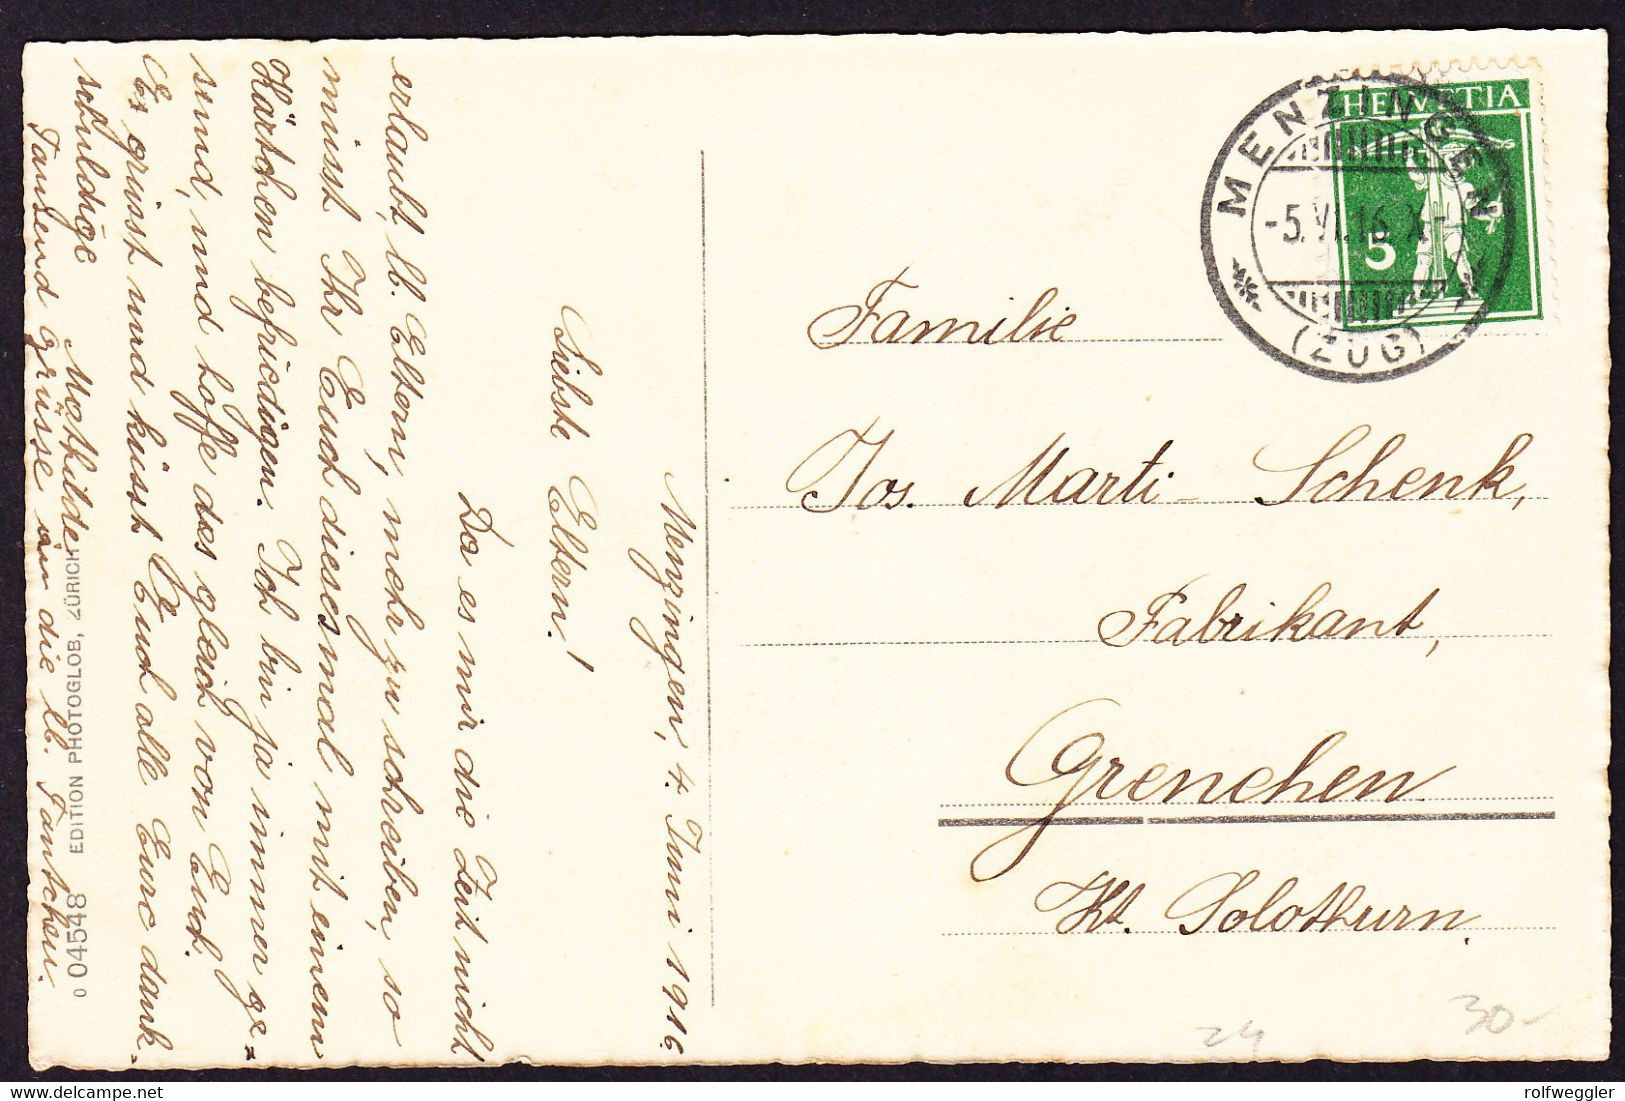 Menzingen, 4. Juni 1916
Liebste Eltern!
Da es mir die Zeit nicht
erlaubt, lb. Eltern, mehr zu schreiben, so
müsst Ihr Euch diesesmal mit einem
Kärtchen befriedigen. Ich bin ja immer ge=
sund, und hoffe das gleich von Euch.
Es grüsst und küsst Euch alle Eure dank-
schuldige
Mathilde
Tausend grüsse an die lb. Tantchen.
0 04548 EDITION PHOTOGLOB, ZÜRICH
HELVETIA
5
MENZINGEN
-5.VI.16.X-
(ZUG)
Familie
Jos. Marti-Schenk,
Fabrikant,
Grenchen
Kt. Solothurn.
24
30-
delcampe.net
rolfweggler